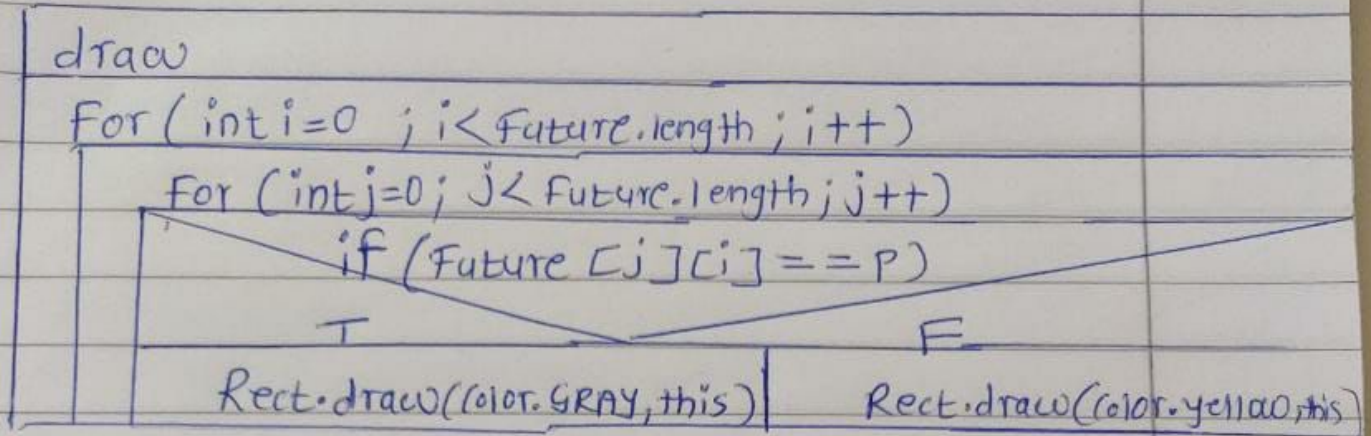 draw
For (int i=0 ; i<Future.length ; i++)
For (int j=0; j<Future.length; j++)
if (Future [j][i] == P)
T F
Rect.draw(Color.GRAY, this) Rect.draw(Color.yellow, this)